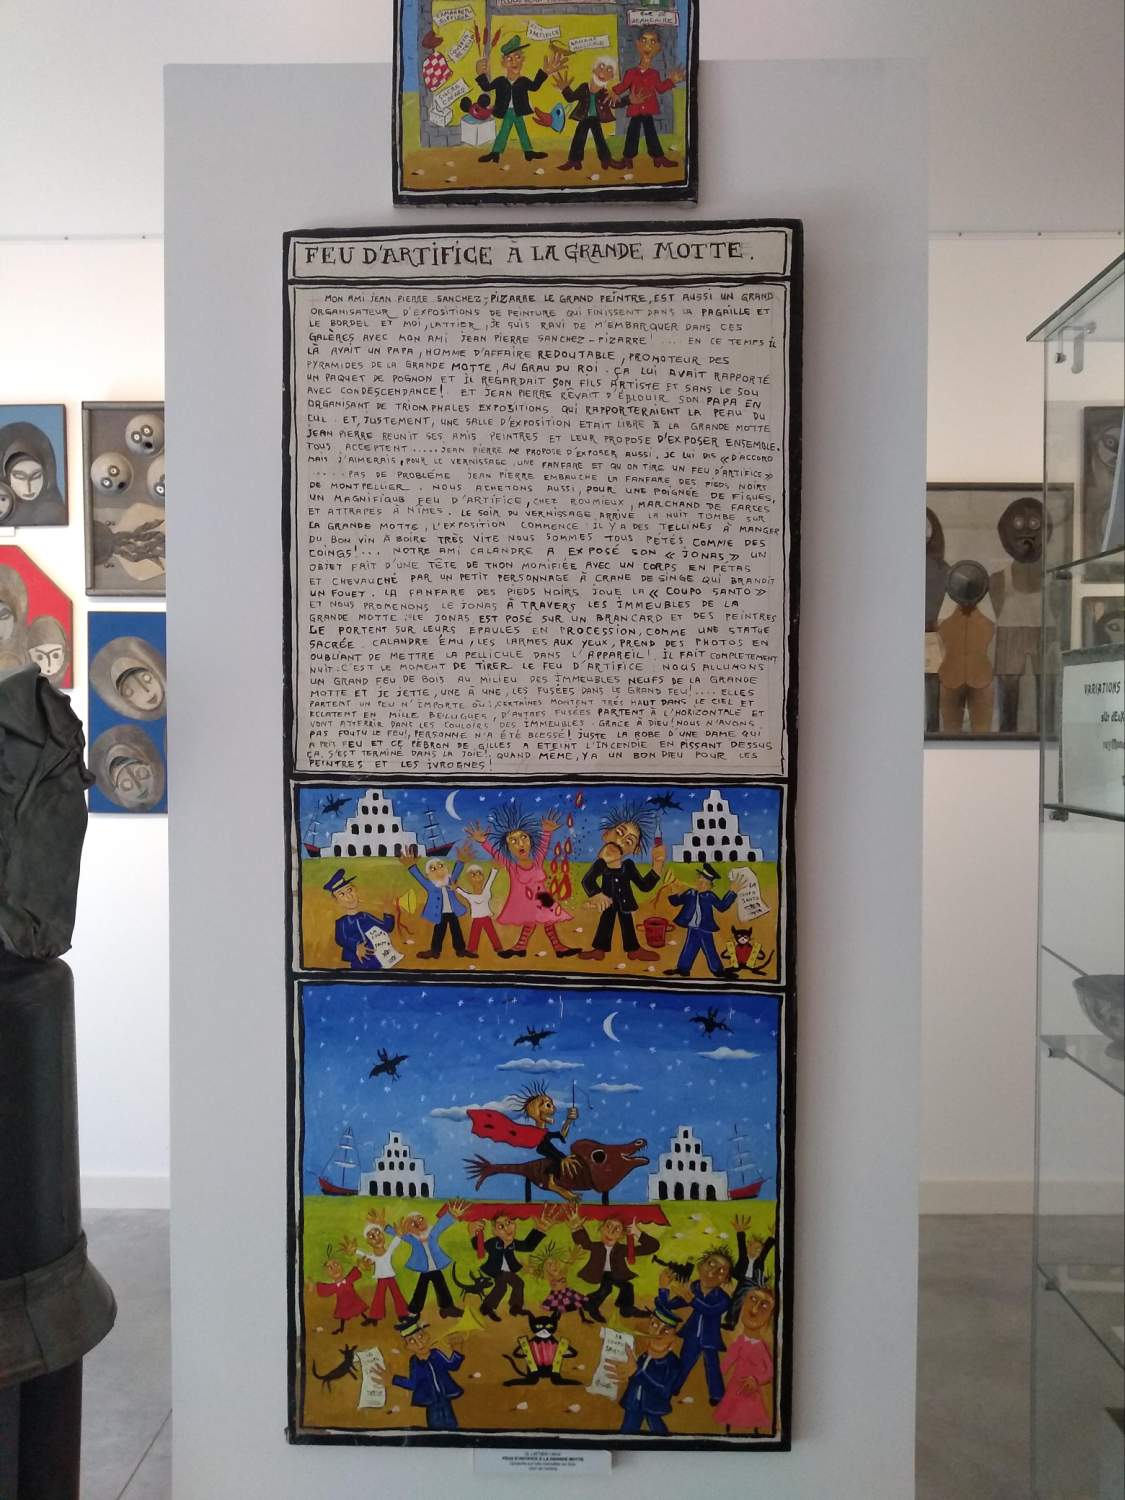 RUE DE
BEAUCAIRE
FEU D'ARTIFICE À LA GRANDE MOTTE.
MON AMI JEAN PIERRE SANCHEZ-PIZARRE LE GRAND PEINTRE, EST AUSSI UN GRAND
ORGANISATEUR D'EXPOSITIONS DE PEINTURE QUI FINISSENT DANS LA PAGAILLE ET
LE BORDEL ET MOI, LATTIER, JE SUIS RAVI DE M'EMBARQUER DANS CES
GALÈRES AVEC MON AMI JEAN PIERRE SANCHEZ-PIZARRE! ... EN CE TEMPS IL
LÀ AVAIT UN PAPA, HOMME D'AFFAIRE REDOUTABLE, PROMOTEUR DES
PYRAMIDES DE LA GRANDE MOTTE, AU GRAU DU ROI. ÇA LUI AVAIT RAPPORTÉ
UN PAQUET DE POGNON ET IL REGARDAIT SON FILS ARTISTE ET SANS LE SOU
AVEC CONDESCENDANCE! ET JEAN PIERRE RÊVAIT D'ÉBLOUIR SON PAPA EN
ORGANISANT DE TRIOMPHALES EXPOSITIONS QUI RAPPORTERAIENT LA PEAU DU
CUL. ET, JUSTEMENT, UNE SALLE D'EXPOSITION ETAIT LIBRE À LA GRANDE MOTTE
JEAN PIERRE REUNIT SES AMIS PEINTRES ET LEUR PROPOSE D'EXPOSER ENSEMBLE.
TOUS ACCEPTENT..... JEAN PIERRE ME PROPOSE D'EXPOSER AUSSI. JE LUI DIS «D'ACCORD
MAIS J'AIMERAIS, POUR LE VERNISSAGE UNE FANFARE ET QU'ON TIRE UN FEU D'ARTIFICE»
..... PAS DE PROBLÉME JEAN PIERRE EMBAUCHE LA FANFARE DES PIEDS NOIRS
DE MONTPELLIER. NOUS ACHETONS AUSSI, POUR UNE POIGNÉE DE FIGUES,
UN MAGNIFIQUE FEU D'ARTIFICE, CHEZ ROUMIEUX, MARCHAND DE FARCES
ET ATTRAPES À NIMES. LE SOIR DU VERNISSAGE ARRIVE LA NUIT TOMBE SUR
LA GRANDE MOTTE, L'EXPOSITION COMMENCE: IL Y A DES TELLINES À MANGER
DU BON VIN À BOIRE TRÈS VITE NOUS SOMMES TOUS PETÉS COMME DES
COINGS!... NOTRE AMI CALANDRE A EXPOSÉ SON «JONAS» UN
OBJET FAIT D'UNE TÊTE DE THON MOMIFIÉE AVEC UN CORPS EN PETAS
ET CHEVAUCHÉ PAR UN PETIT PERSONNAGE À CRANE DE SINGE QUI BRANDIT
UN FOUET. LA FANFARE DES PIEDS NOIRS JOUE LA «COUPO SANTO»
ET NOUS PROMENONS LE JONAS À TRAVERS LES IMMEUBLES DE LA
GRANDE MOTTE: LE JONAS EST POSÉ SUR UN BRANCARD ET DES PEINTRES
LE PORTENT SUR LEURS EPAULES EN PROCESSION, COMME UNE STATUE
SACRÉE. CALANDRE ÉMU, LES LARMES AUX YEUX, PREND DES PHOTOS EN
OUBLIANT DE METTRE LA PELLICULE DANS L'APPAREIL!. IL FAIT COMPLETEMENT
NUIT: C'EST LE MOMENT DE TIRER LE FEU D'ARTIFICE: NOUS ALLUMONS
UN GRAND FEU DE BOIS AU MILIEU DES IMMEUBLES NEUFS DE LA GRANDE
MOTTE ET JE JETTE, UNE À UNE, LES FUSÉES DANS LE GRAND FEU!.... ELLES
PARTENT UN PEU N'IMPORTE OÙ; CERTAINES MONTENT TRÉS HAUT DANS LE CIEL ET
ECLATENT EN MILLE BELUGUES, D'AUTRES FUSÉES PARTENT À L'HORIZONTALE ET
VONT ATTERRIR DANS LES COULOIRS DES IMMEUBLES. GRACE À DIEU! NOUS N'AVONS
PAS FOUTU LE FEU!, PERSONNE N'A ÉTÉ BLESSÉ! JUSTE LA ROBE D'UNE DAME QUI
A PRIT FEU ET CE PEBRON DE GILLES A ETEINT L'INCENDIE EN PISSANT DESSUS
ÇA S'EST TERMINÉ DANS LA JOIE!. QUAND MÊME, Y'A UN BON DIEU POUR LES
PEINTRES ET LES IVROGNES!
LA
COUPO
SANTO
LA
COUPO
SANTO
VARIATIONS
FEUX D'ARTIFICE À LA GRANDE MOTTE